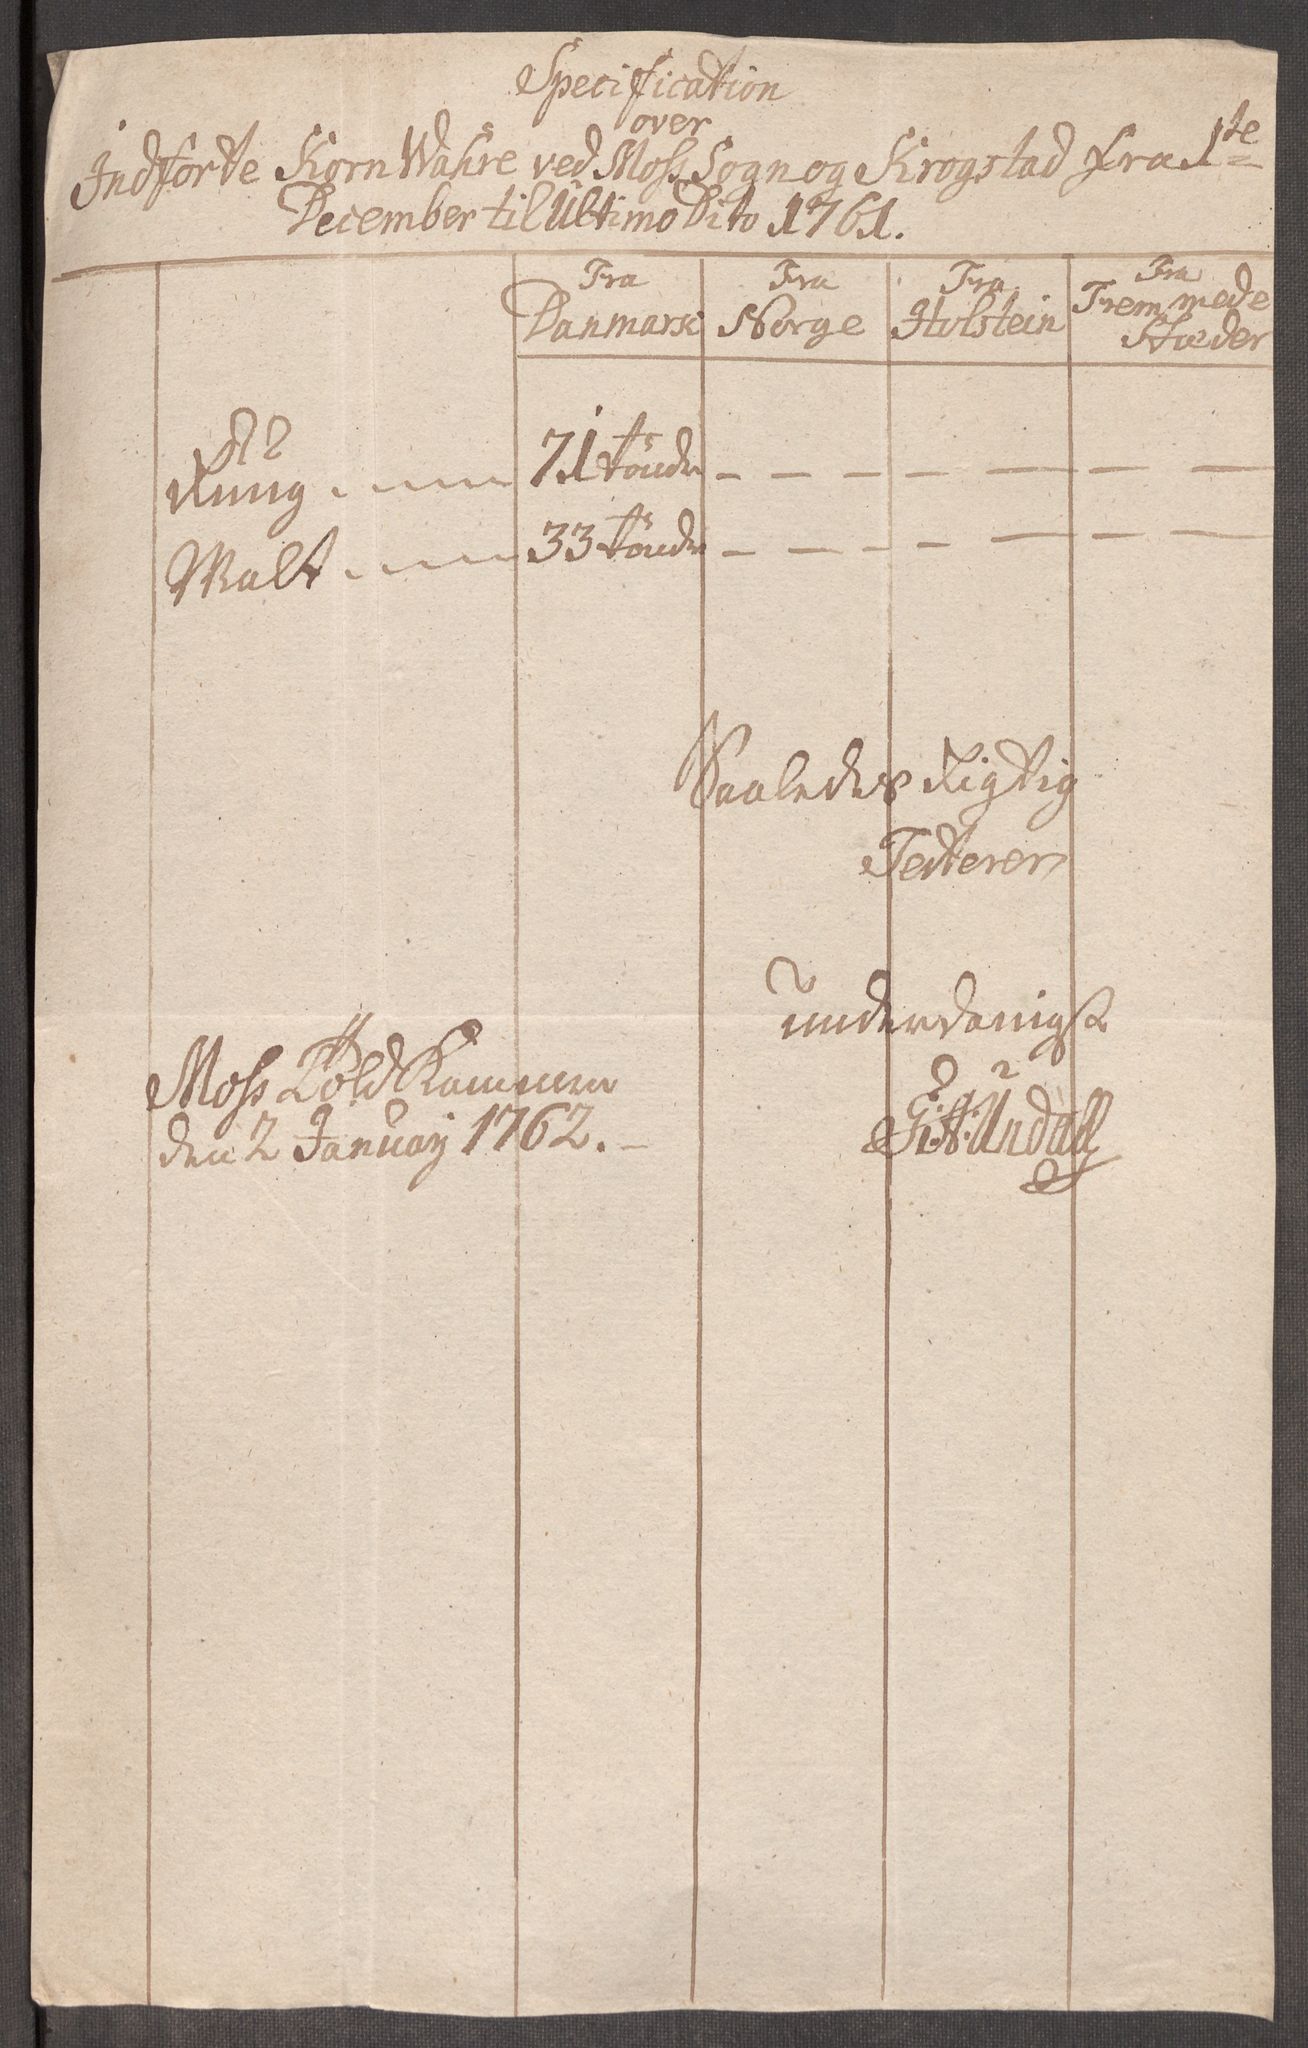 Specification
over
Indførte Korn Wahre ved Moss Sogn og Krogstad fra 1te
December til Ultimo Dito 1761.
Fra Danmark
Fra Norge
Fra Holstein
Fra Fremmede Stæder
Rüng 71 tönder — — — — — — —
Malt 33 tönder — — — — — — —
Saaledes Rigtig
Testerer
underdanigst
Moss Told Kammer
den 2 January 1762.
Undall